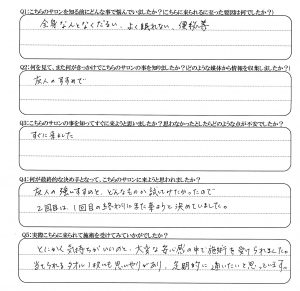 Q1:こちらのサロンを知る前にどんな事で悩んでいましたか?(こちらに来られるに至った要因は何でしたか?)
全身なんとなくだるい、よく眠れない、便秘等
Q2:何を見て、また何がきっかけでこちらのサロンの事を知りましたか?(どのような媒体から情報を収集しましたか?)
友人のすすめで
Q3:こちらのサロンの事を知ってすぐに来ようと思いましたか?思わなかったとしたらどのような点が不安でしたか?
すぐに来ました
Q4:何が最終的な決め手となって、こちらのサロンに来ようと思われましたか?
友人の強いすすめと、どんなものか試してみたかったので
2回目は、1回目の終わりにまた来ようと決めていました。
Q5:実際こちらに来られて施術を受けてみていかがでしたか?
とにかく気持ちがいいのと、大変な安心感の中で施術を受けられました。
当てられるタオル1枚にも思いやりがあり、定期的に通いたいと思っています。